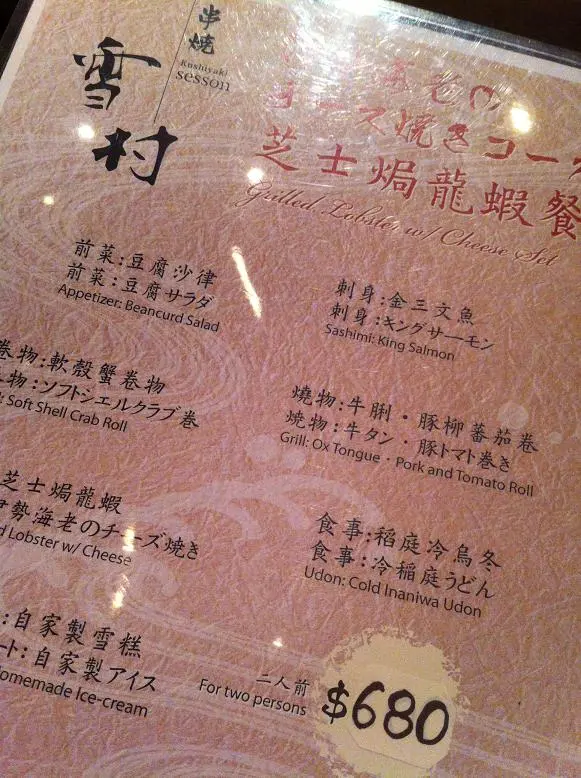 串燒
Kushiyaki
sesson
雪村
老の
ーズ焼きコー
芝士焗龍蝦餐
Grilled Lobster w/ Cheese Set
前菜:豆腐沙律
前菜:豆腐サラダ
Appetizer: Beancurd Salad
刺身:金三文魚
刺身:キングサーモン
Sashimi: King Salmon
卷物:軟殼蟹卷物
物:ソフトシエルクラブ巻
Soft Shell Crab Roll
燒物:牛脷・豚柳蕃茄卷
焼物:牛タン・豚トマト巻き
Grill: Ox Tongue・Pork and Tomato Roll
芝士焗龍蝦
伊勢海老のチーズ焼き
Lobster w/ Cheese
食事:稻庭冷烏冬
食事:冷稲庭うどん
Udon: Cold Inaniwa Udon
:自家製雪糕
ート:自家製アイス
Homemade Ice-cream
二人前
For two persons
$680